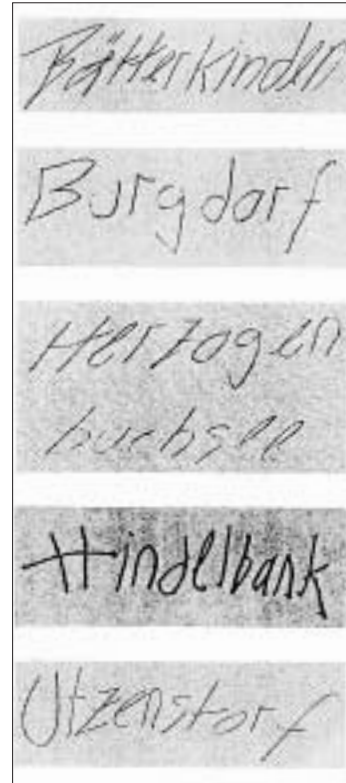 Bätterkinden
Burgdorf
Herzogen
buchsee
Hindelbank
Utzenstorf